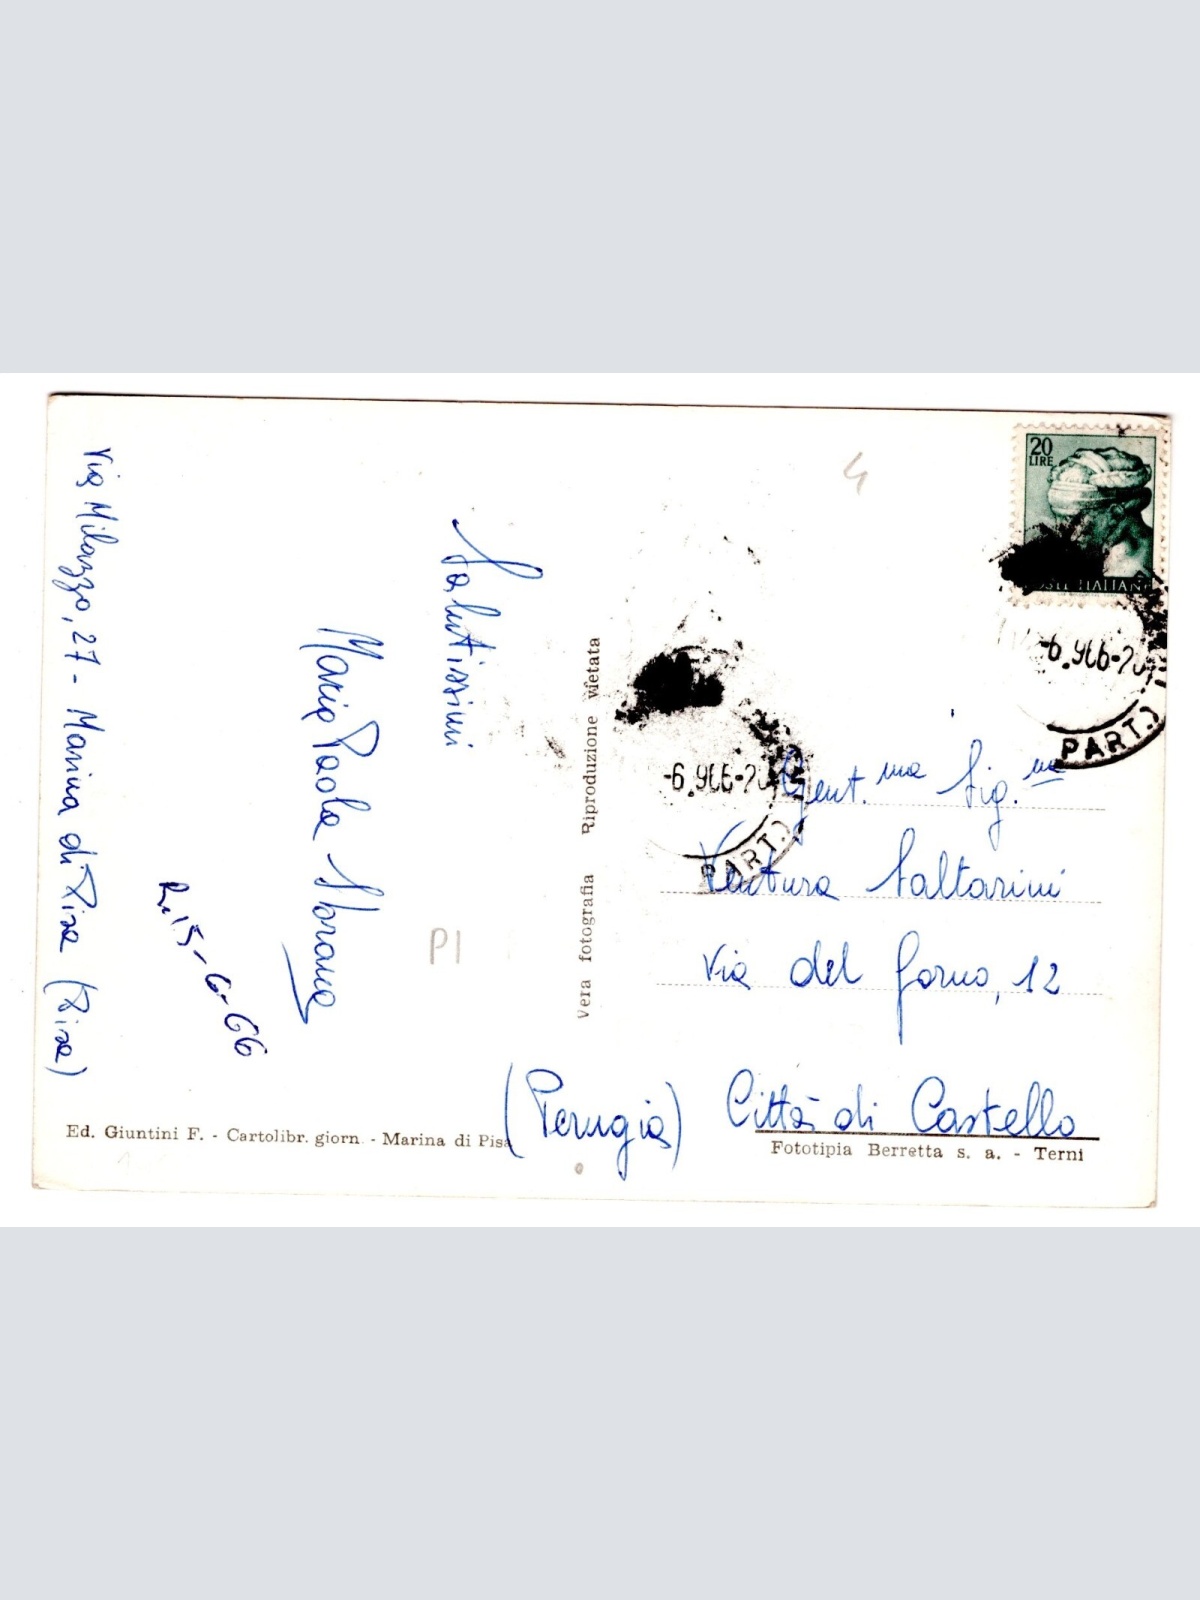 Via Milazzo, 27 - Marina di Pisa (Pisa)
R. 15-6-66
Maria Paola
Salutissimi
P1
4
Vera fotografia Riproduzione vietata
20
LIRE
POSTE ITALIANE
PART.)
PART.)
Gent.ma Sig.na
Ventura Saltarini
Via del Forno, 12
(Perugia) Città di Castello
Ed. Giuntini F. - Cartolibr. giorn. - Marina di Pisa
Fototipia Berretta s. a. - Terni